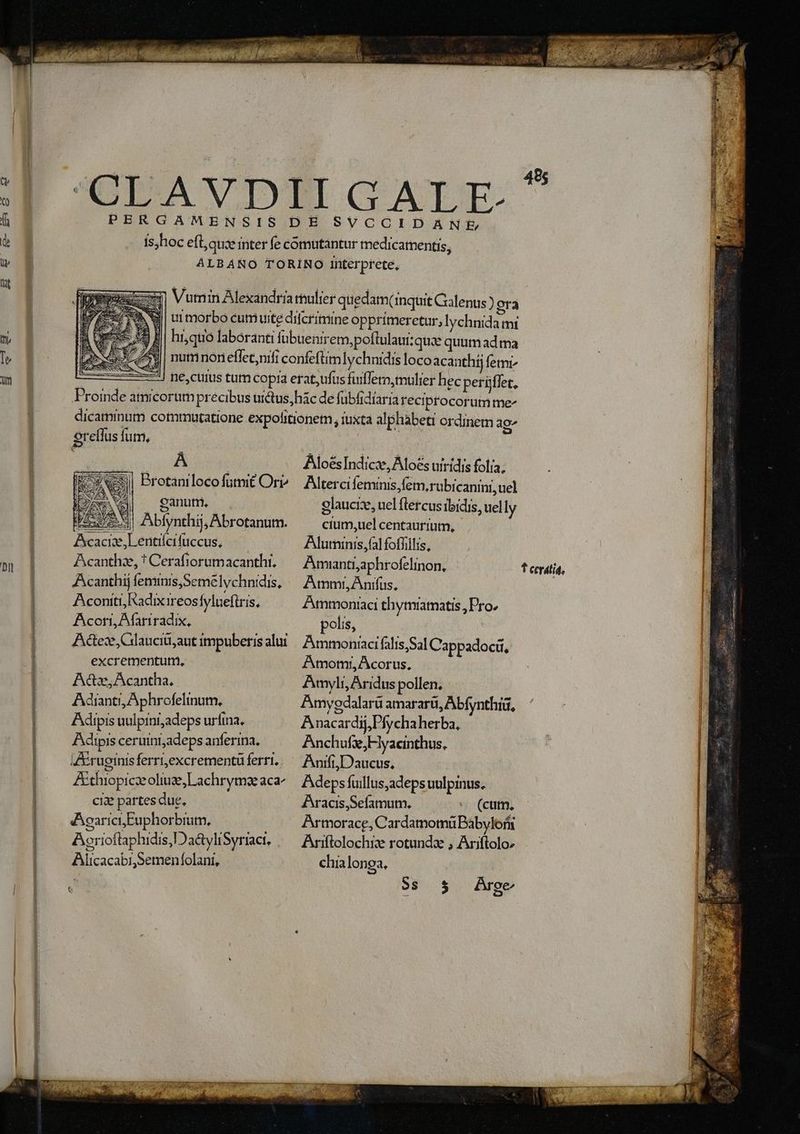 485
CLAVDII GALE-
PERGAMENSIS DE SVCCIDANE,
is, hoc eſt, quæ inter ſe cōmutantur medicamentis,
ALBANO TORINO interprete.
Vum in Alexandria mulier quedam (inquit Galenus) gra
ui morbo cum uitę diſcrimine opprimeretur, lychnida mi
hi, quo laboranti ſubuenirem, poſtulaui: quæ quum ad ma
num non eſſet, niſi confeſtim lychnidis loco acanthij ſemi-
ne, cuius tum copia erat, uſus fuiſſem, mulier hęc perijſſet.
Proinde amicorum precibus uictus, hāc de ſubſidiaria reciprocorum me-
dicaminum commutatione expoſitionem, iuxta alphabeti ordinem ag-
greſſus ſum.
A
Brotani loco ſumit̃ Ori-
ganum.
Abſynthij, Abrotanum.
Acaciæ, Lentiſci ſuccus.
Acanthæ, † Cerafiorum acanthi.
Acanthij ſeminis, Semē lychnidis.
Aconiti, Radix ireos ſylueſtris.
Acori, Aſari radix.
Acteæ, Glauciū, aut impuberis alui
excrementum.
Actæ, Acantha.
Adianti, Aphroſelinum.
Adipis uulpini, adeps urſina.
Adipis ceruini, adeps anſerina.
Æruginis ferri, excrementū ferri.
Æthiopicæ oliuæ, Lachrymæ aca-
ciæ partes duę.
Agarici, Euphorbium.
Agrioſtaphidis, Dactyli Syriaci.
Alicacabi, Semen ſolani.
Aloës Indicæ, Aloës uiridis folia.
Alterci ſeminis, ſem. rubi canini, uel
glauciæ, uel ſtercus ibidis, uel ly
cium, uel centaurium.
Aluminis, ſal foſſillis.
Amianti, aphroſelinon.
Ammi, Aniſus.
Ammoniaci thymiamatis, Pro-
polis,
Ammoniaci ſalis, Sal Cappadocū.
Amomi, Acorus.
Amyli, Aridus pollen.
Amygdalarū amararū, Abſynthiū.
Anacardij, Pſycha herba.
Anchuſæ, Hyacinthus.
Aniſi, Daucus.
Adeps ſuillus, adeps uulpinus.
Aracis, Seſamum. (cum.
Armorace, Cardamomū Babyloni
Ariſtolochiæ rotundæ, Ariſtolo-
chia longa.
† ceratia.
Ss 5 Arge-